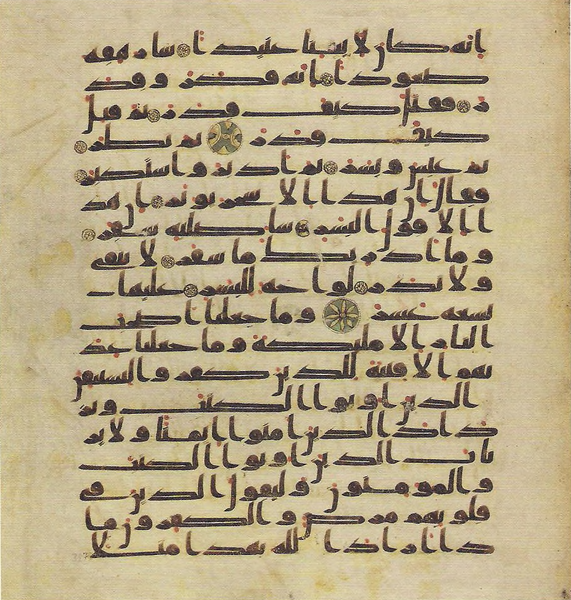 انه كان لايتنا عنيدا سارهقه
صعودا انه فكر وقد
ر فقتل كيف قدر ثم قتل
كيف قدر ثم نظر
ثم عبس وبسر ثم ادبر واستكبر
فقال ان هذا الا سحر يوثر ان هذ
ا الا قول البشر ساصليه سقر
وما ادريك ما سقر لا تبقى
ولا تذر لواحة للبشر عليها
تسعة عشر وما جعلنا اصحب
النار الا مليكة وما جعلنا عد
تهم الا فتنة للذين كفروا ليستيقن
الذين اوتوا الكتب ويز
داد الذين امنوا ايمنا ولا ير
تاب الذين اوتوا الكتب
والمومنون وليقول الذين في
قلوبهم مرض والكفرون ما
ذا اراد الله بهذا مثلا